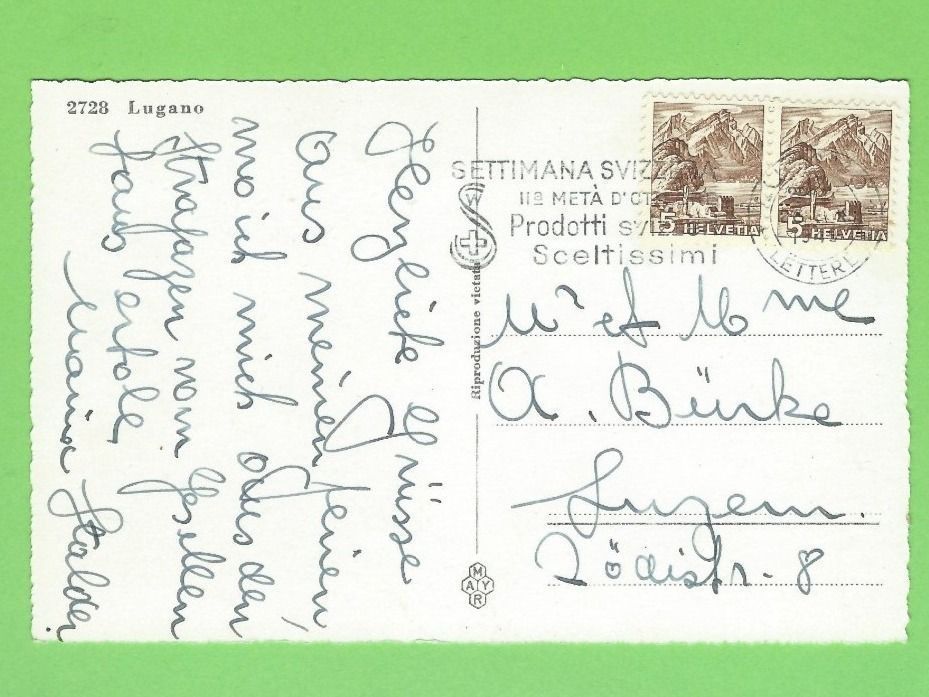 2728 Lugano
Herzliche Grüsse
aus meinen Ferien,
wo ich mich aus den
Strapazen vom
haus erhole
Maria Stalder.
SETTIMANA SVIZZ
IIª METÀ D'OT
Prodotti sv
Sceltissimi
W
5 HELVETIA
5 HELVETIA
LETTERE
Riproduzione vietata
Mr et Mme
A. Bürke
Luzern.
8
MAYR